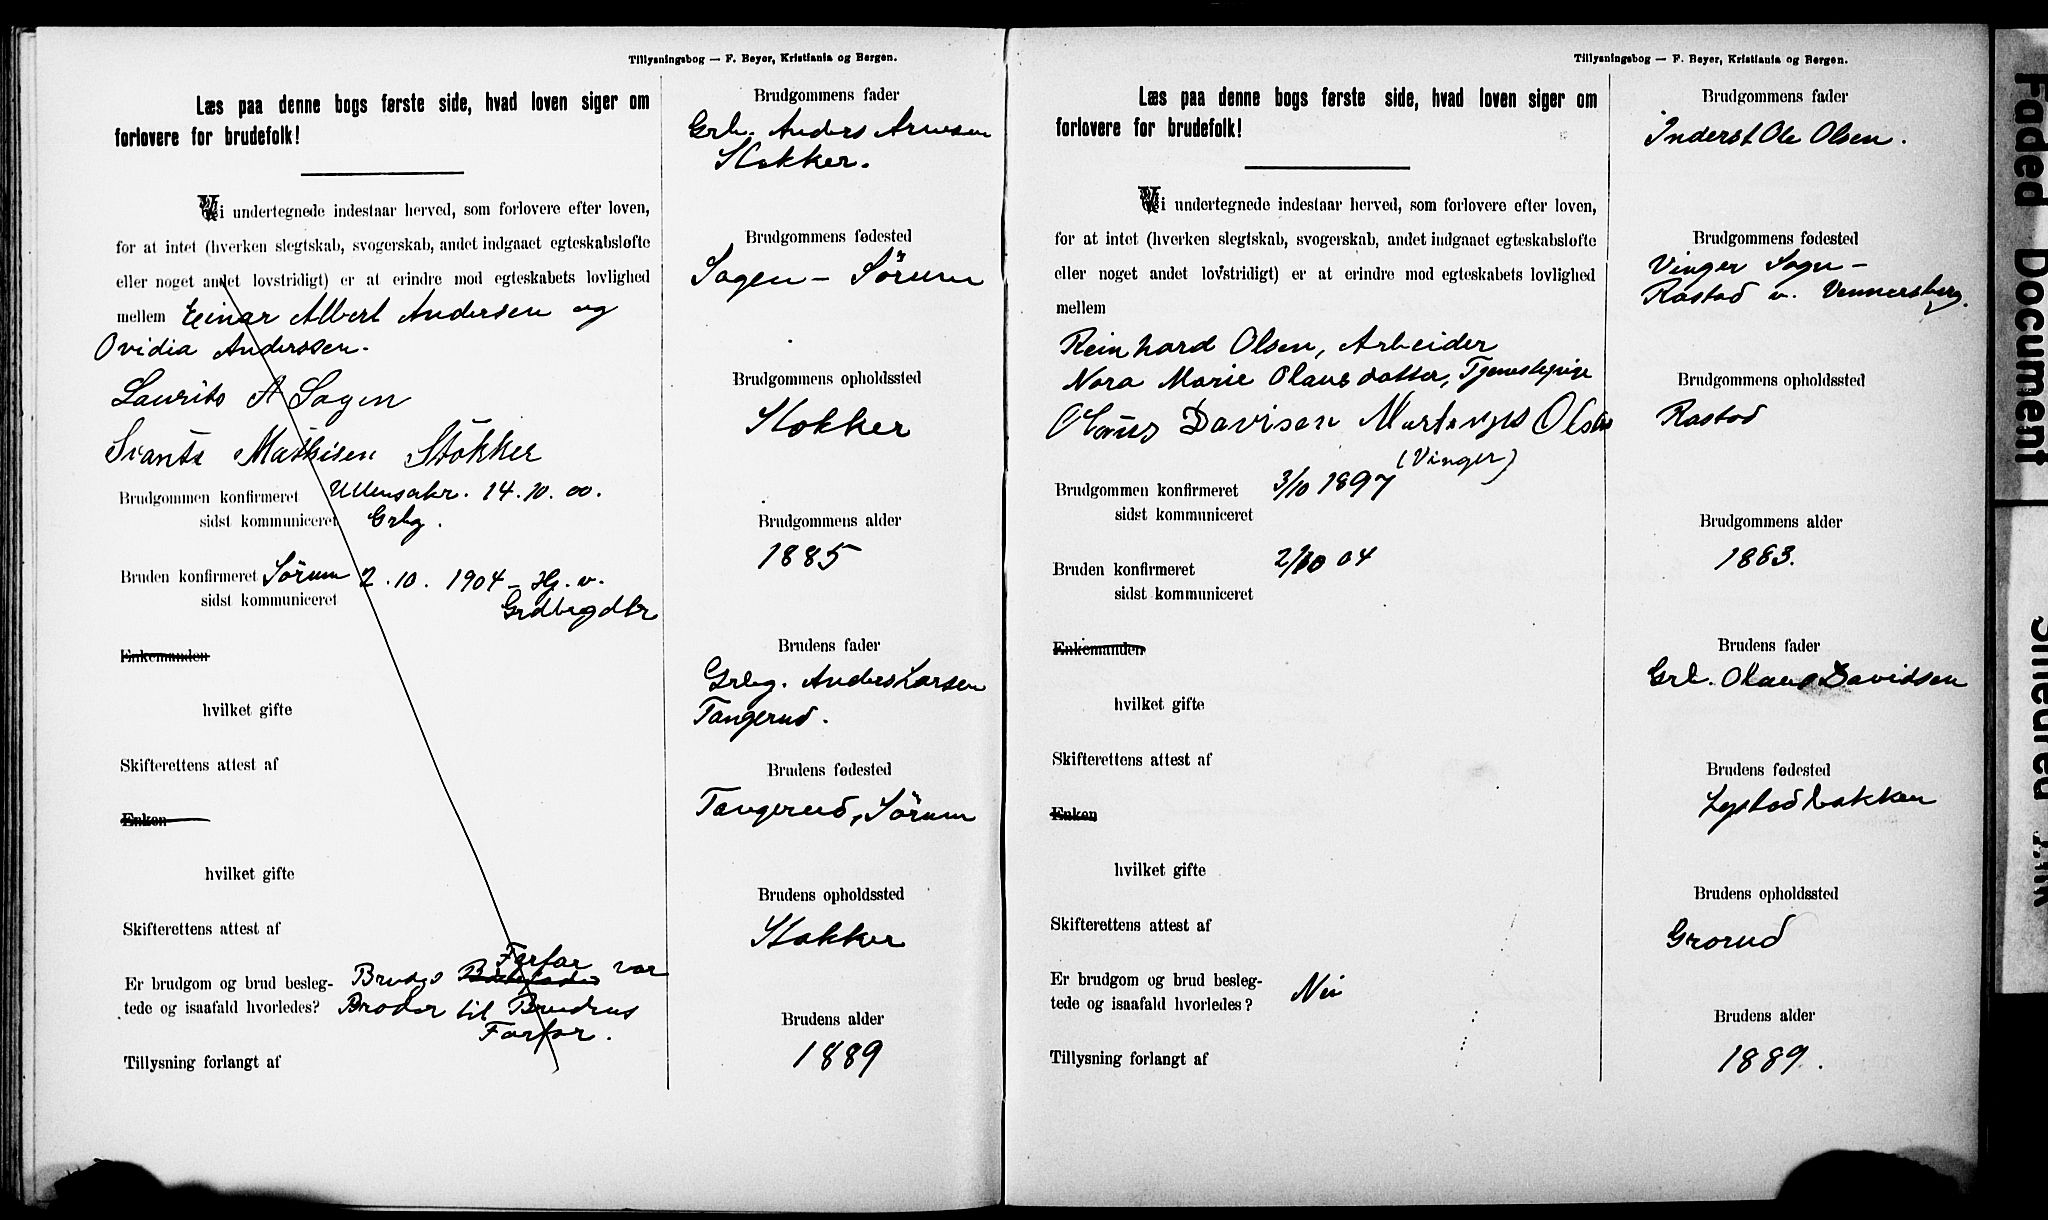 Tillysningsbog — F. Beyer, Kristiania og Bergen.
Læs paa denne bogs første side, hvad loven siger om
forlovere for brudefolk!
Vi undertegnede indestaar herved, som forlovere efter loven,
for at intet (hverken slegtskab, svogerskab, andet indgaaet egteskabsløfte
eller noget andet lovstridigt) er at erindre mod egteskabets lovlighed
mellem Einar Albert Andersen og
Ovidia Anderssen.
Laurits A Sagen
Svants Mathisen Stokker
Brudgommen konfirmeret Ullensaker. 14.10.00.
sidst kommuniceret Grbg.
Bruden konfirmeret Sörum 2.10.1904 - Hj. v.
sidst kommuniceret Grdbrgdtr
Enkemanden
hvilket gifte
Skifterettens attest af
Enken
hvilket gifte
Skifterettens attest af
Farfar
Er brudgom og brud besleg- Brudgs var
tede og isaafald hvorledes? Broder til Brudens
Farfar.
Tillysning forlangt af
Brudgommens fader
Grb. Anders Arnesen
Stokker.
Brudgommens fødested
Sagen - Sörum
Brudgommens opholdssted
Stokker
Brudgommens alder
1885
Brudens fader
Grbg. Anders Larsen
Tangerud.
Brudens fødested
Tangerud, Sörum
Brudens opholdssted
Stokker
Brudens alder
1889
Tillysningsbog — F. Beyer, Kristiania og Bergen.
Læs paa denne bogs første side, hvad loven siger om
forlovere for brudefolk!
Vi undertegnede indestaar herved, som forlovere efter loven,
for at intet (hverken slegtskab, svogerskab, andet indgaaet egteskabsløfte
eller noget andet lovstridigt) er at erindre mod egteskabets lovlighed
mellem
Reinhard Olsen, Arbeider
Nora Marie Olausdatter, Tjenestepige
Olaus Davisen Olsen
(Vinger)
Brudgommen konfirmeret 3/10 1897
sidst kommuniceret
Bruden konfirmeret 2/10 04
sidst kommuniceret
Enkemanden
hvilket gifte
Skifterettens attest af
Enken
hvilket gifte
Skifterettens attest af
Er brudgom og brud besleg-
tede og isaafald hvorledes? Nei
Tillysning forlangt af
Brudgommens fader
Inderst Ole Olsen.
Brudgommens fødested
Vinger Sogn -
Rastad v. Vennersberg.
Brudgommens opholdssted
Rastad
Brudgommens alder
1883.
Brudens fader
Grb. Olaus Davidsen
Brudens fødested
Lystadbakken
Brudens opholdssted
Grorud
Brudens alder
1889.
Faded Document
Smeared Ink